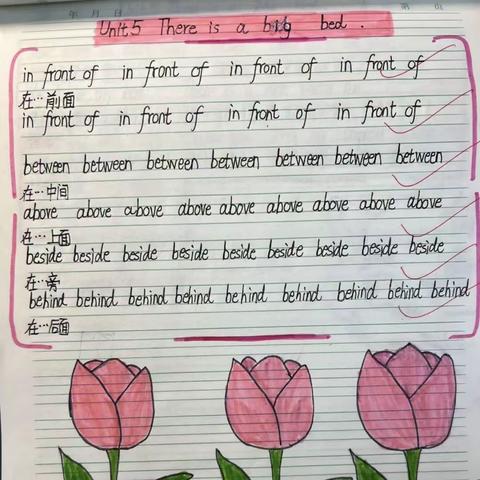 年 月 日
Unit 5 There is a big bed .
in front of in front of in front of in front of
在…前面
in front of in front of in front of in front of
between between between between between between between
在…中间
above above above above above above above above above
在…上面
beside beside beside beside beside beside beside beside beside
在…旁
behind behind behind behind behind behind behind behind behind
在…后面